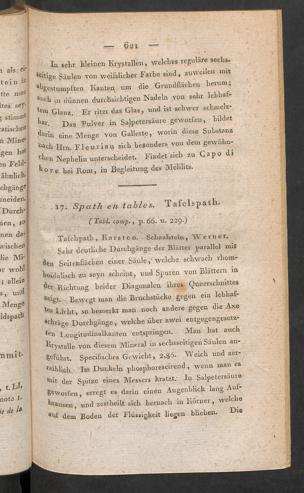 — 621 —
In sehr kleinen Krystallen, welches reguläre sechs-
seitige Säulen von weißlicher Farbe sind, zuweilen mit
abgestumpften Kanten um die Grundflächen herum;
auch in dünnen durchsichtigen Nadeln von sehr lebhaf-
tem Glanz. Er ritzt das Glas, und ist schwer schmelz-
bar. Das Pulver in Salpetersäure geworfen, bildet
darin eine Menge von Gallerte, worin diese Substanz
nach Hrn. Fleuriau sich besonders von dem gewöhn-
chen Nephelin unterscheidet. Findet sich zu Capo di
bove bei Rom, in Begleitung des Melilits.
17. Spath en tables. Tafelspath.
(Tabl. comp., p. 66. u. 229.)
Tafelspath, Karsten. Schaalstein, Werner.
Sehr deutliche Durchgänge der Blätter parallel mit
den Seitenflächen einer Säule, welche schwach rhom-
boidalisch zu seyn scheint, und Spuren von Blättern in
der Richtung beider Diagonalen ihres Querschnittes
zeigt. Bewegt man die Bruchstücke gegen ein lebhaf-
tes Licht, so bemerkt man noch andere gegen die Axe
schräge Durchgänge, welche über zwei entgegengesetz-
ten Longitudinalkanten entspringen. Man hat auch
Krystalle von diesem Mineral in sechsseitigen Säulen an-
geführt. Specifisches Gewicht, 2,86. Weich und zer-
reiblich. Im Dunkeln phosphorescirend, wenn man es
mit der Spitze eines Messers kratzt. In Salpetersäure
geworfen, erregt es darin einen Augenblick lang Auf-
brausen, und zertheilt sich hernach in Körner, welche
auf dem Boden der Flüssigkeit liegen blieben. Die